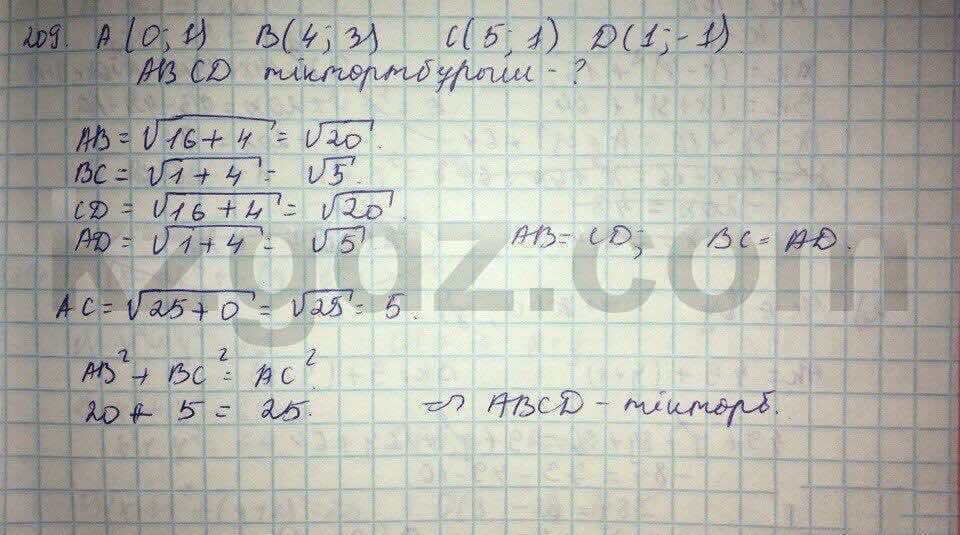 209. A (0; 1) B(4; 3) C(5; 1) D(1; -1)
ABCD тіктөртбұрыш - ?
AB = √16+4 = √20.
BC = √1+4 = √5.
CD = √16+4 = √20.
AD = √1+4 = √5 AB = CD; BC = AD.
AC = √25+0 = √25 = 5.
AB² + BC² = AC².
20 + 5 = 25. => ABCD - тіктөрб.
kzgdz.com